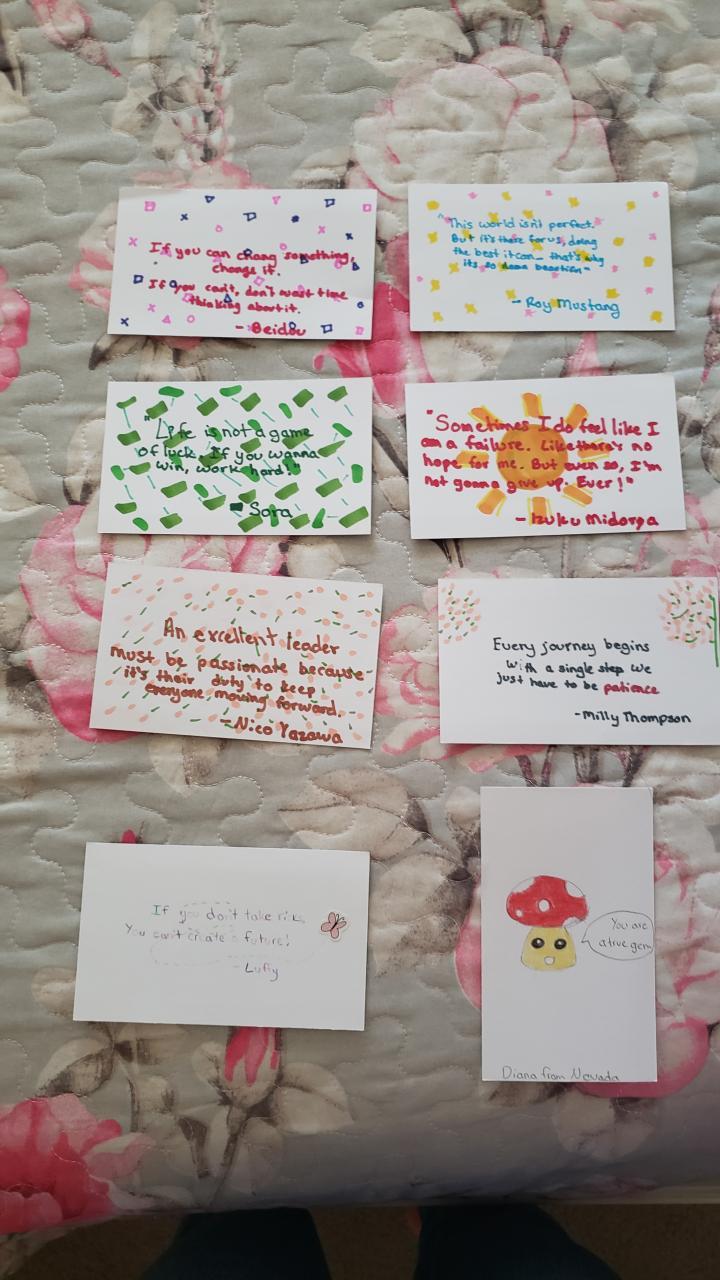 If you can chang something,
change it.
If you can't, don't wast time
thinking about it.
- Beidou
"This world isn't perfect.
But it's there for us, doing
the best it can_ that's why
its so damn beautiful"
- Roy Mustang
"Life is not a game
of luck. If you wanna
win, work hard!"
- Sora
"Sometimes I do feel like I
am a failure. Like there's no
hope for me. But even so, I'm
not gonna give up. Ever!"
- Izuku Midorya
An excellent leader
must be passionate because
it's their duty to keep
everyone moving forward.
- Nico Yazawa
Every journey begins
with a single step we
just have to be patience
- Milly Thompson
If you don't take risks
You can't create a future!
- Luffy
You are
a true gem
Diana from Nevada